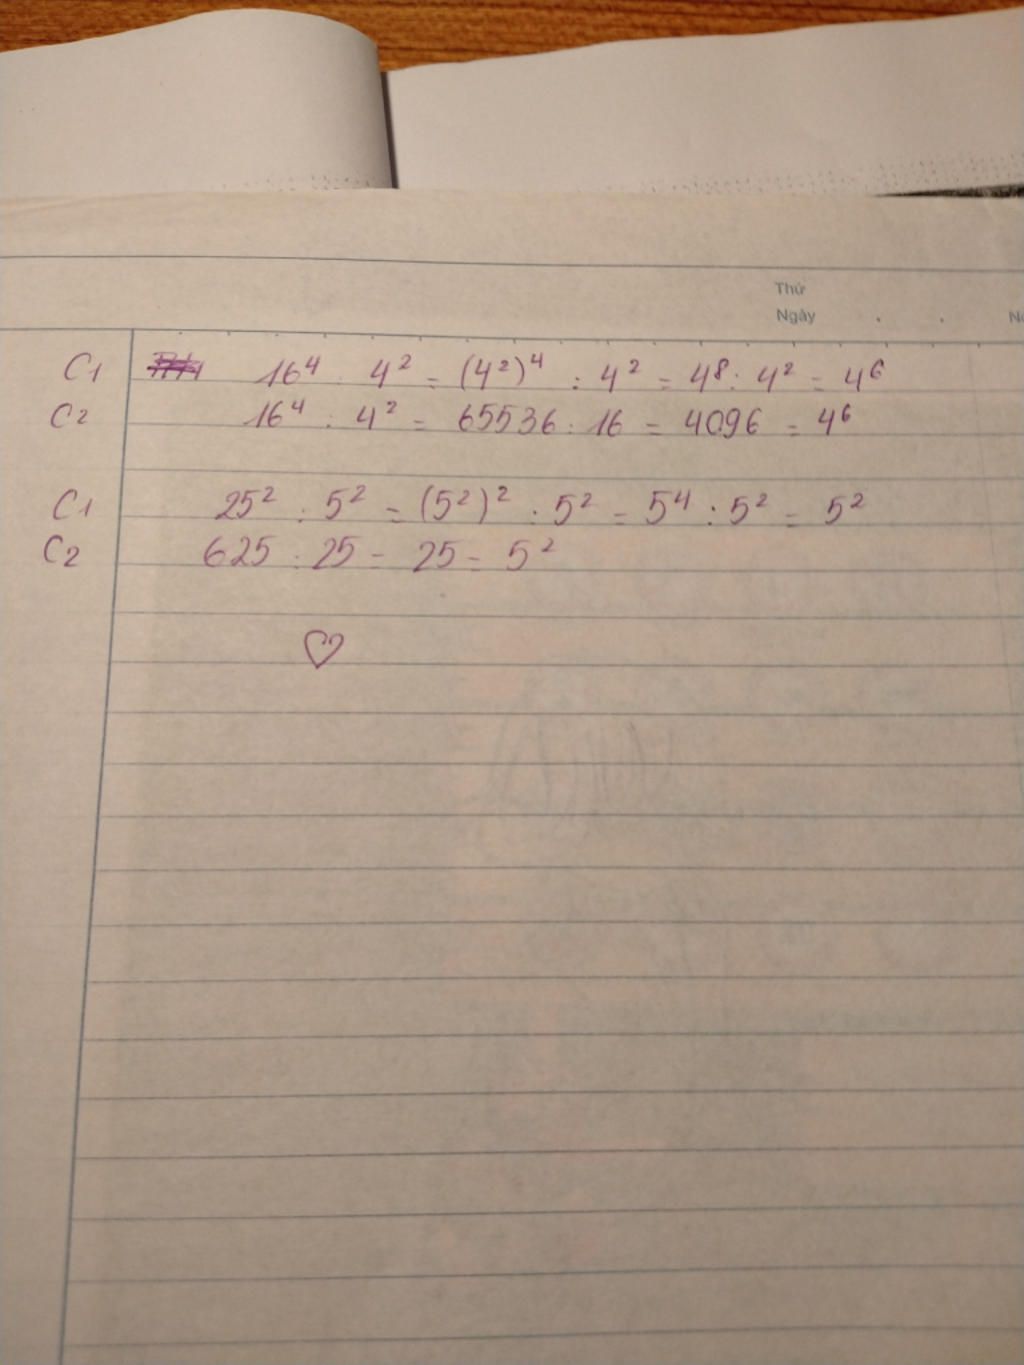 Thứ
Ngày . . N
C1 16⁴ : 4² = (4²)⁴ : 4² = 4⁸ : 4² = 4⁶
C2 16⁴ : 4² = 65536 : 16 = 4096 = 4⁶
C1 25² : 5² = (5²)² : 5² = 5⁴ : 5² = 5²
C2 625 : 25 = 25 = 5²